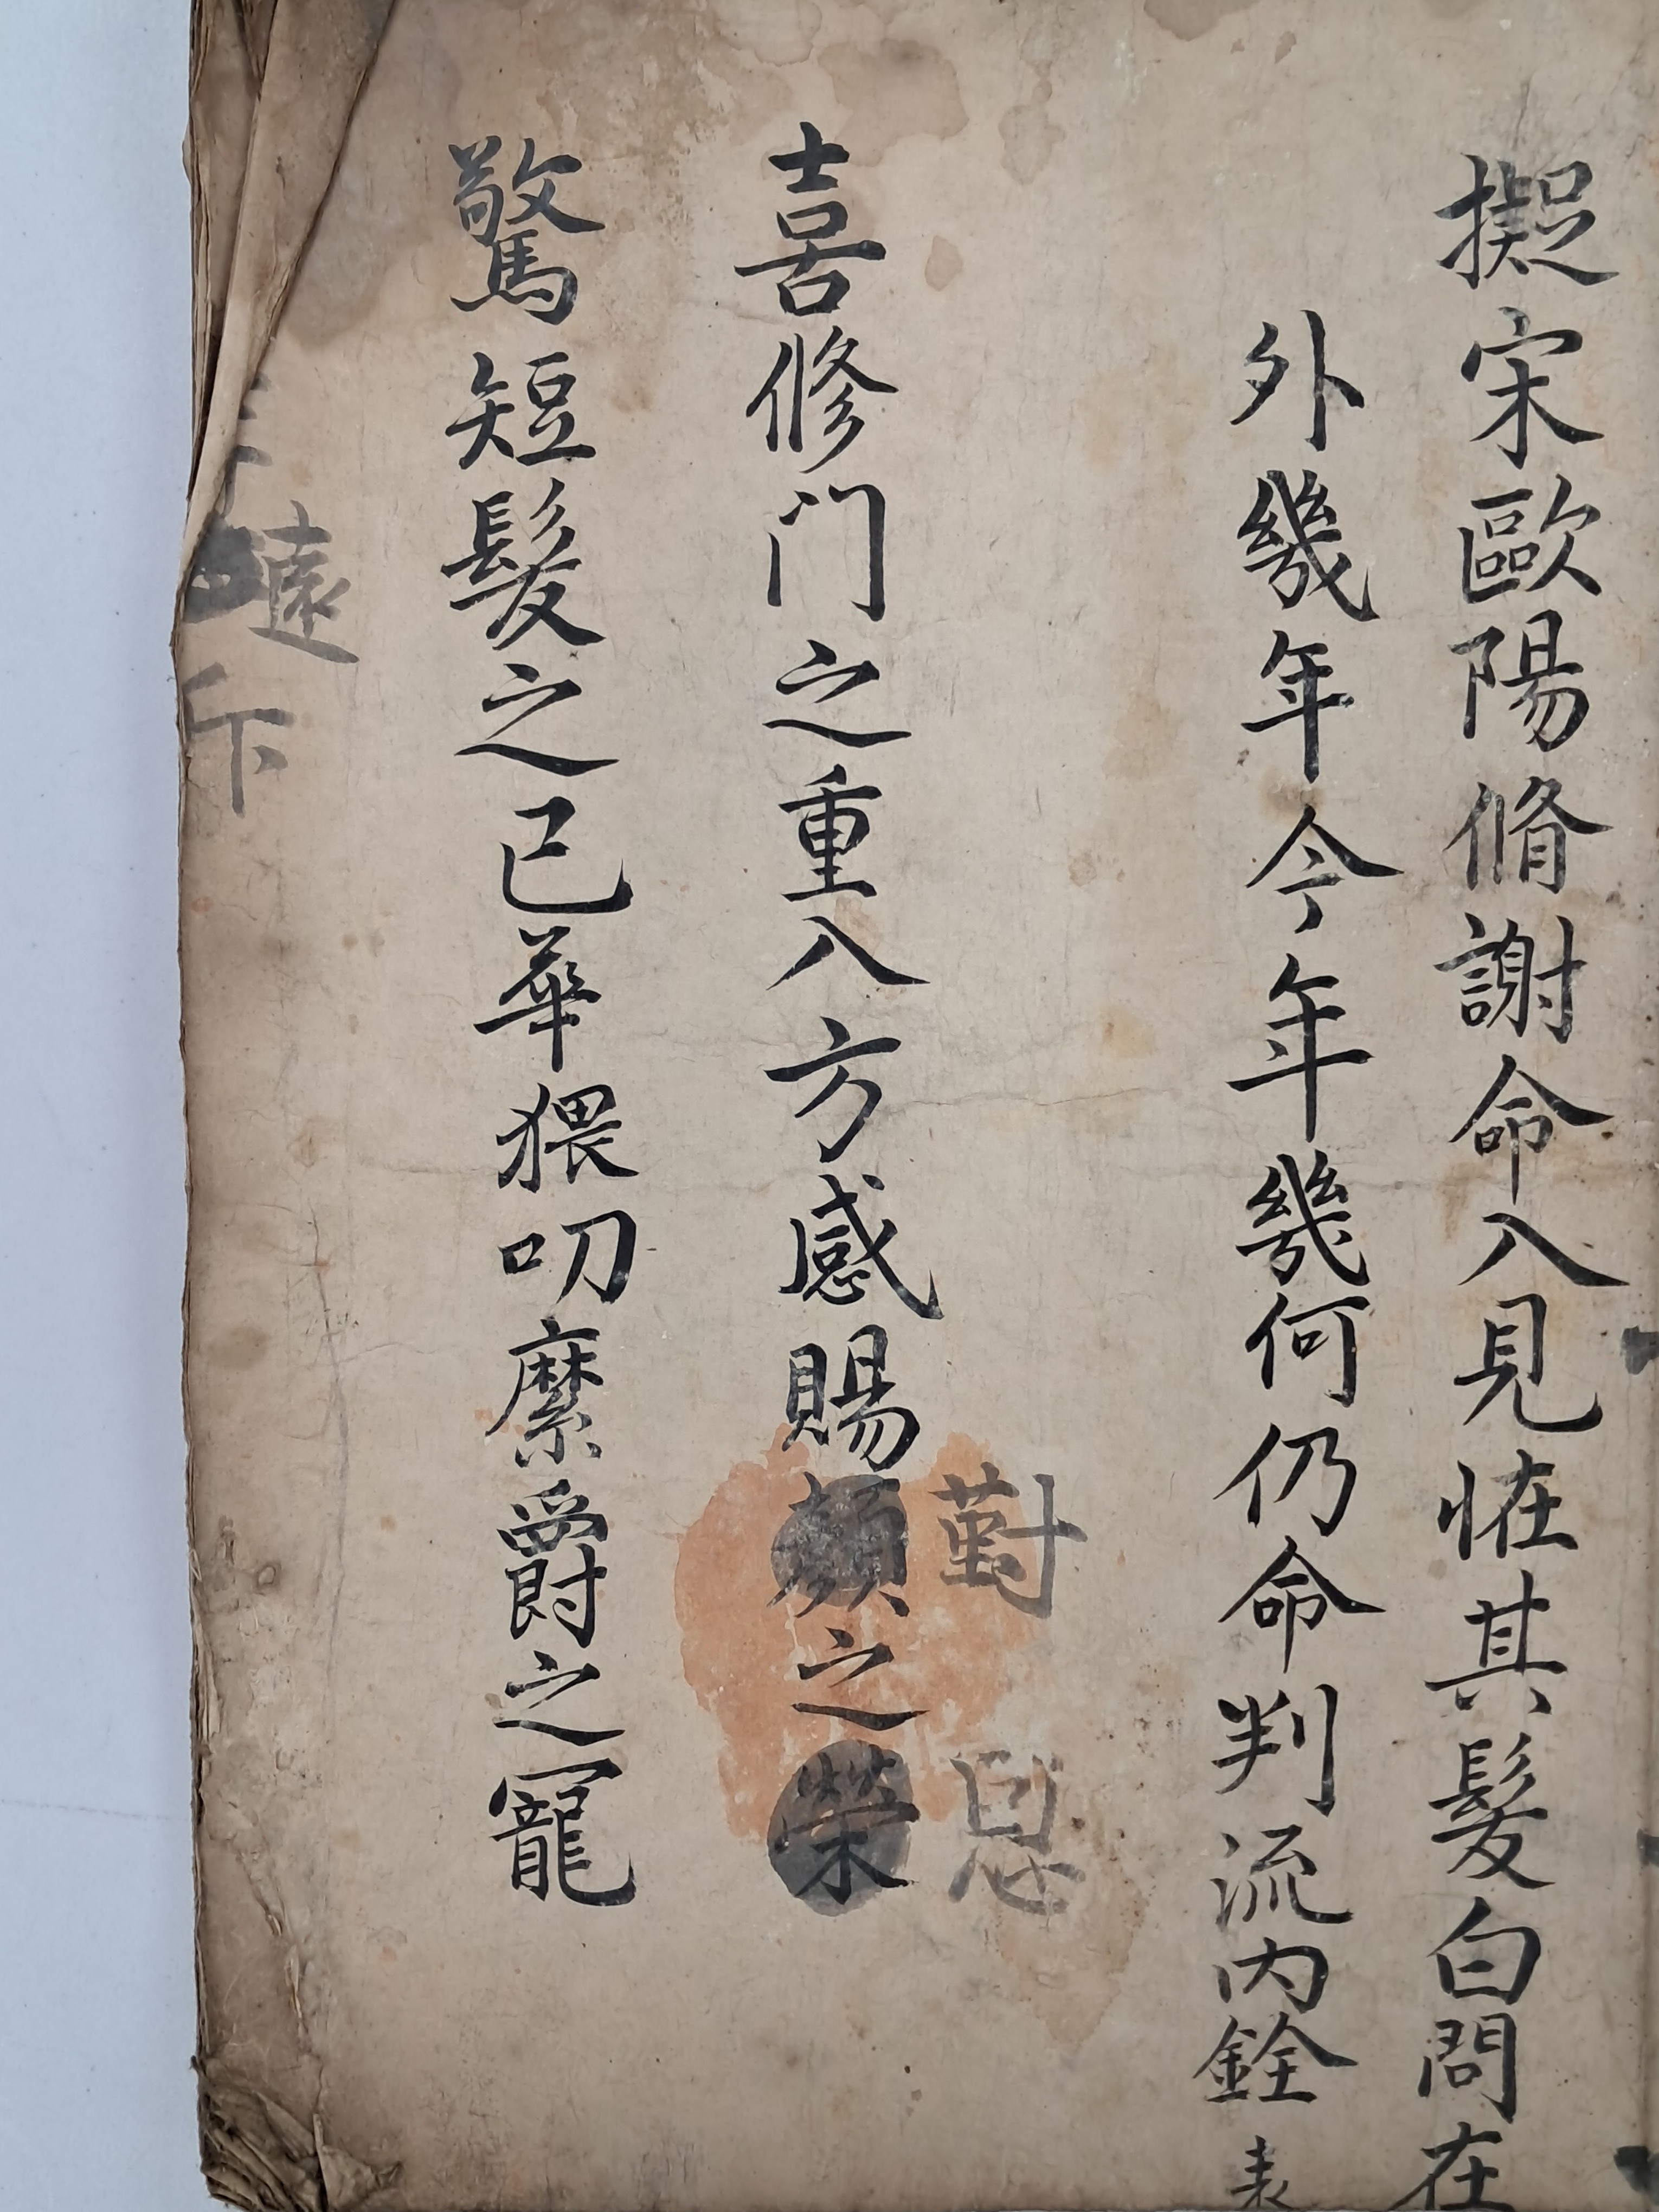 擬宋歐陽脩謝命入見恠其髮白問在
外幾年今年幾何仍命判流內銓表
對 恩
喜修门之重入方感賜顔之榮
驚短髮之已華猥叨縻爵之寵
遠
斥